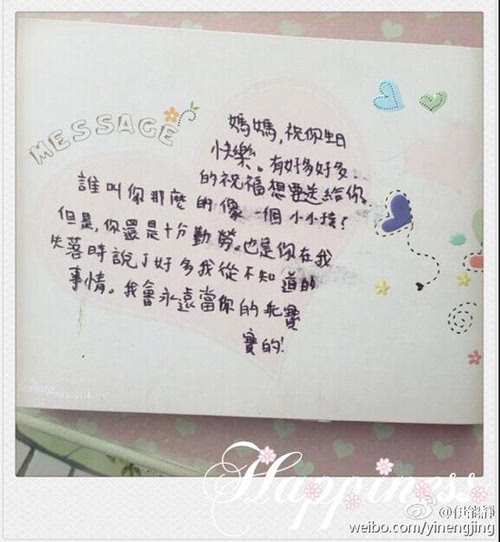 MESSAGE
媽媽,祝你生日
快樂。有好多好多
的祝福想要送給你,
誰叫你那麼的像一個小小孩?
但是,你還是十分勤勞。也是你在我
失落時說了好多我從不知道的
事情。我會永遠當你的乖寶
寶的!
Happiness
@伊能靜
weibo.com/yinengjing